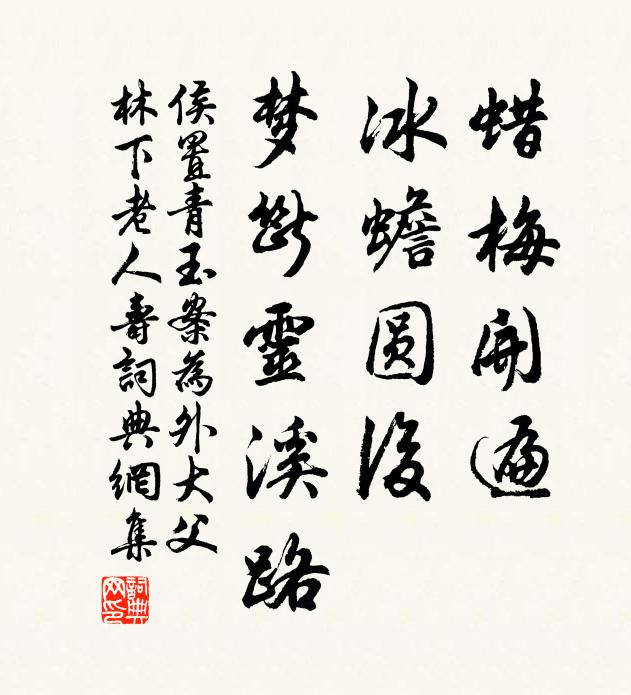 蜡梅開遍
冰蟾圆後
梦斷靈溪路
侯置青玉案為外大父
林下老人壽詞典網集
詞典
网印